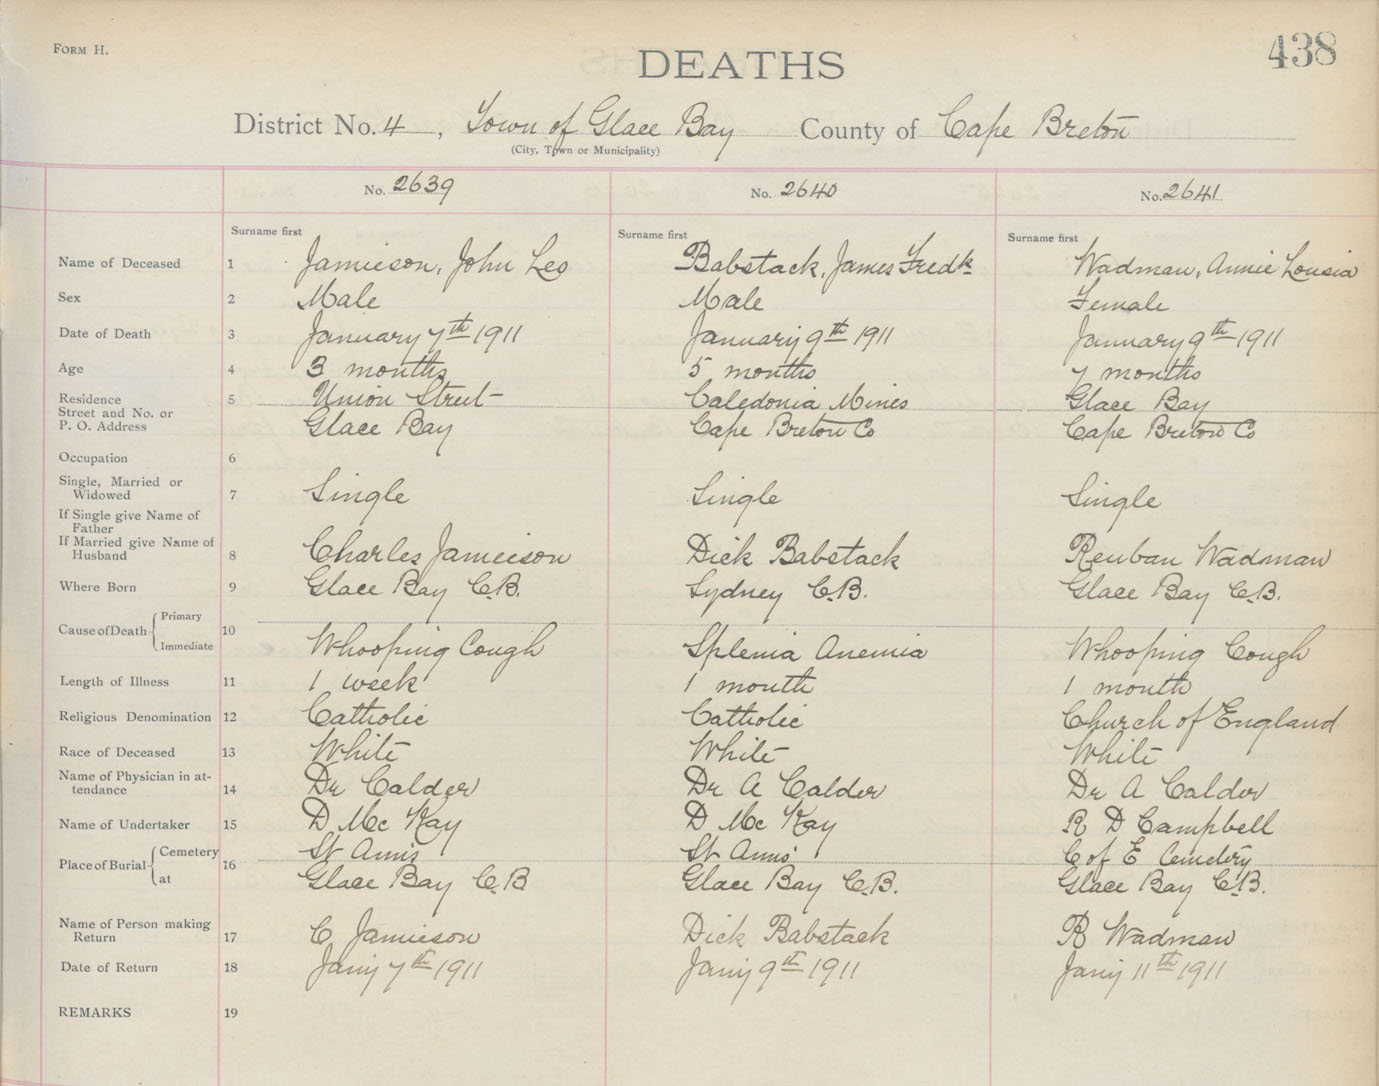 FORM H.
438
DEATHS
District No. 4, Town of Glace Bay County of Cape Breton
(City, Town or Municipality)
No. 2639 No. 2640 No. 2641
Surname first Surname first Surname first
Name of Deceased 1 Jamieson, John Leo Babstack, James Fredk Wadman, Annie Lousia
Sex 2 Male Male Female
Date of Death 3 January 7th 1911 January 9th 1911 January 9th 1911
Age 4 3 months 5 months 7 months
Residence 5 Union Street Caledonia Mines Glace Bay
Street and No. or
P. O. Address Glace Bay Cape Breton Co Cape Breton Co
Occupation 6
Single, Married or
Widowed 7 Single Single Single
If Single give Name of
Father
If Married give Name of
Husband 8 Charles Jamieson Dick Babstack Reuban Wadman
Where Born 9 Glace Bay C.B. Sydney C.B. Glace Bay C.B.
Cause of Death Primary
10
Immediate Whooping Cough Splenia Anemia Whooping Cough
Length of Illness 11 1 week 1 month 1 month
Religious Denomination 12 Catholic Catholic Church of England
Race of Deceased 13 White White White
Name of Physician in at-
tendance 14 Dr Calder Dr A Calder Dr A Calder
Name of Undertaker 15 D Mc Kay D Mc Kay R D Campbell
Place of Burial Cemetery 16 St Anns St Anns' C of E Cemetery
at Glace Bay C.B Glace Bay C.B. Glace Bay C.B.
Name of Person making
Return 17 C Jamieson Dick Babstack R Wadman
Date of Return 18 Jany 7th 1911 Jany 9th 1911 Jany 11th 1911
REMARKS 19